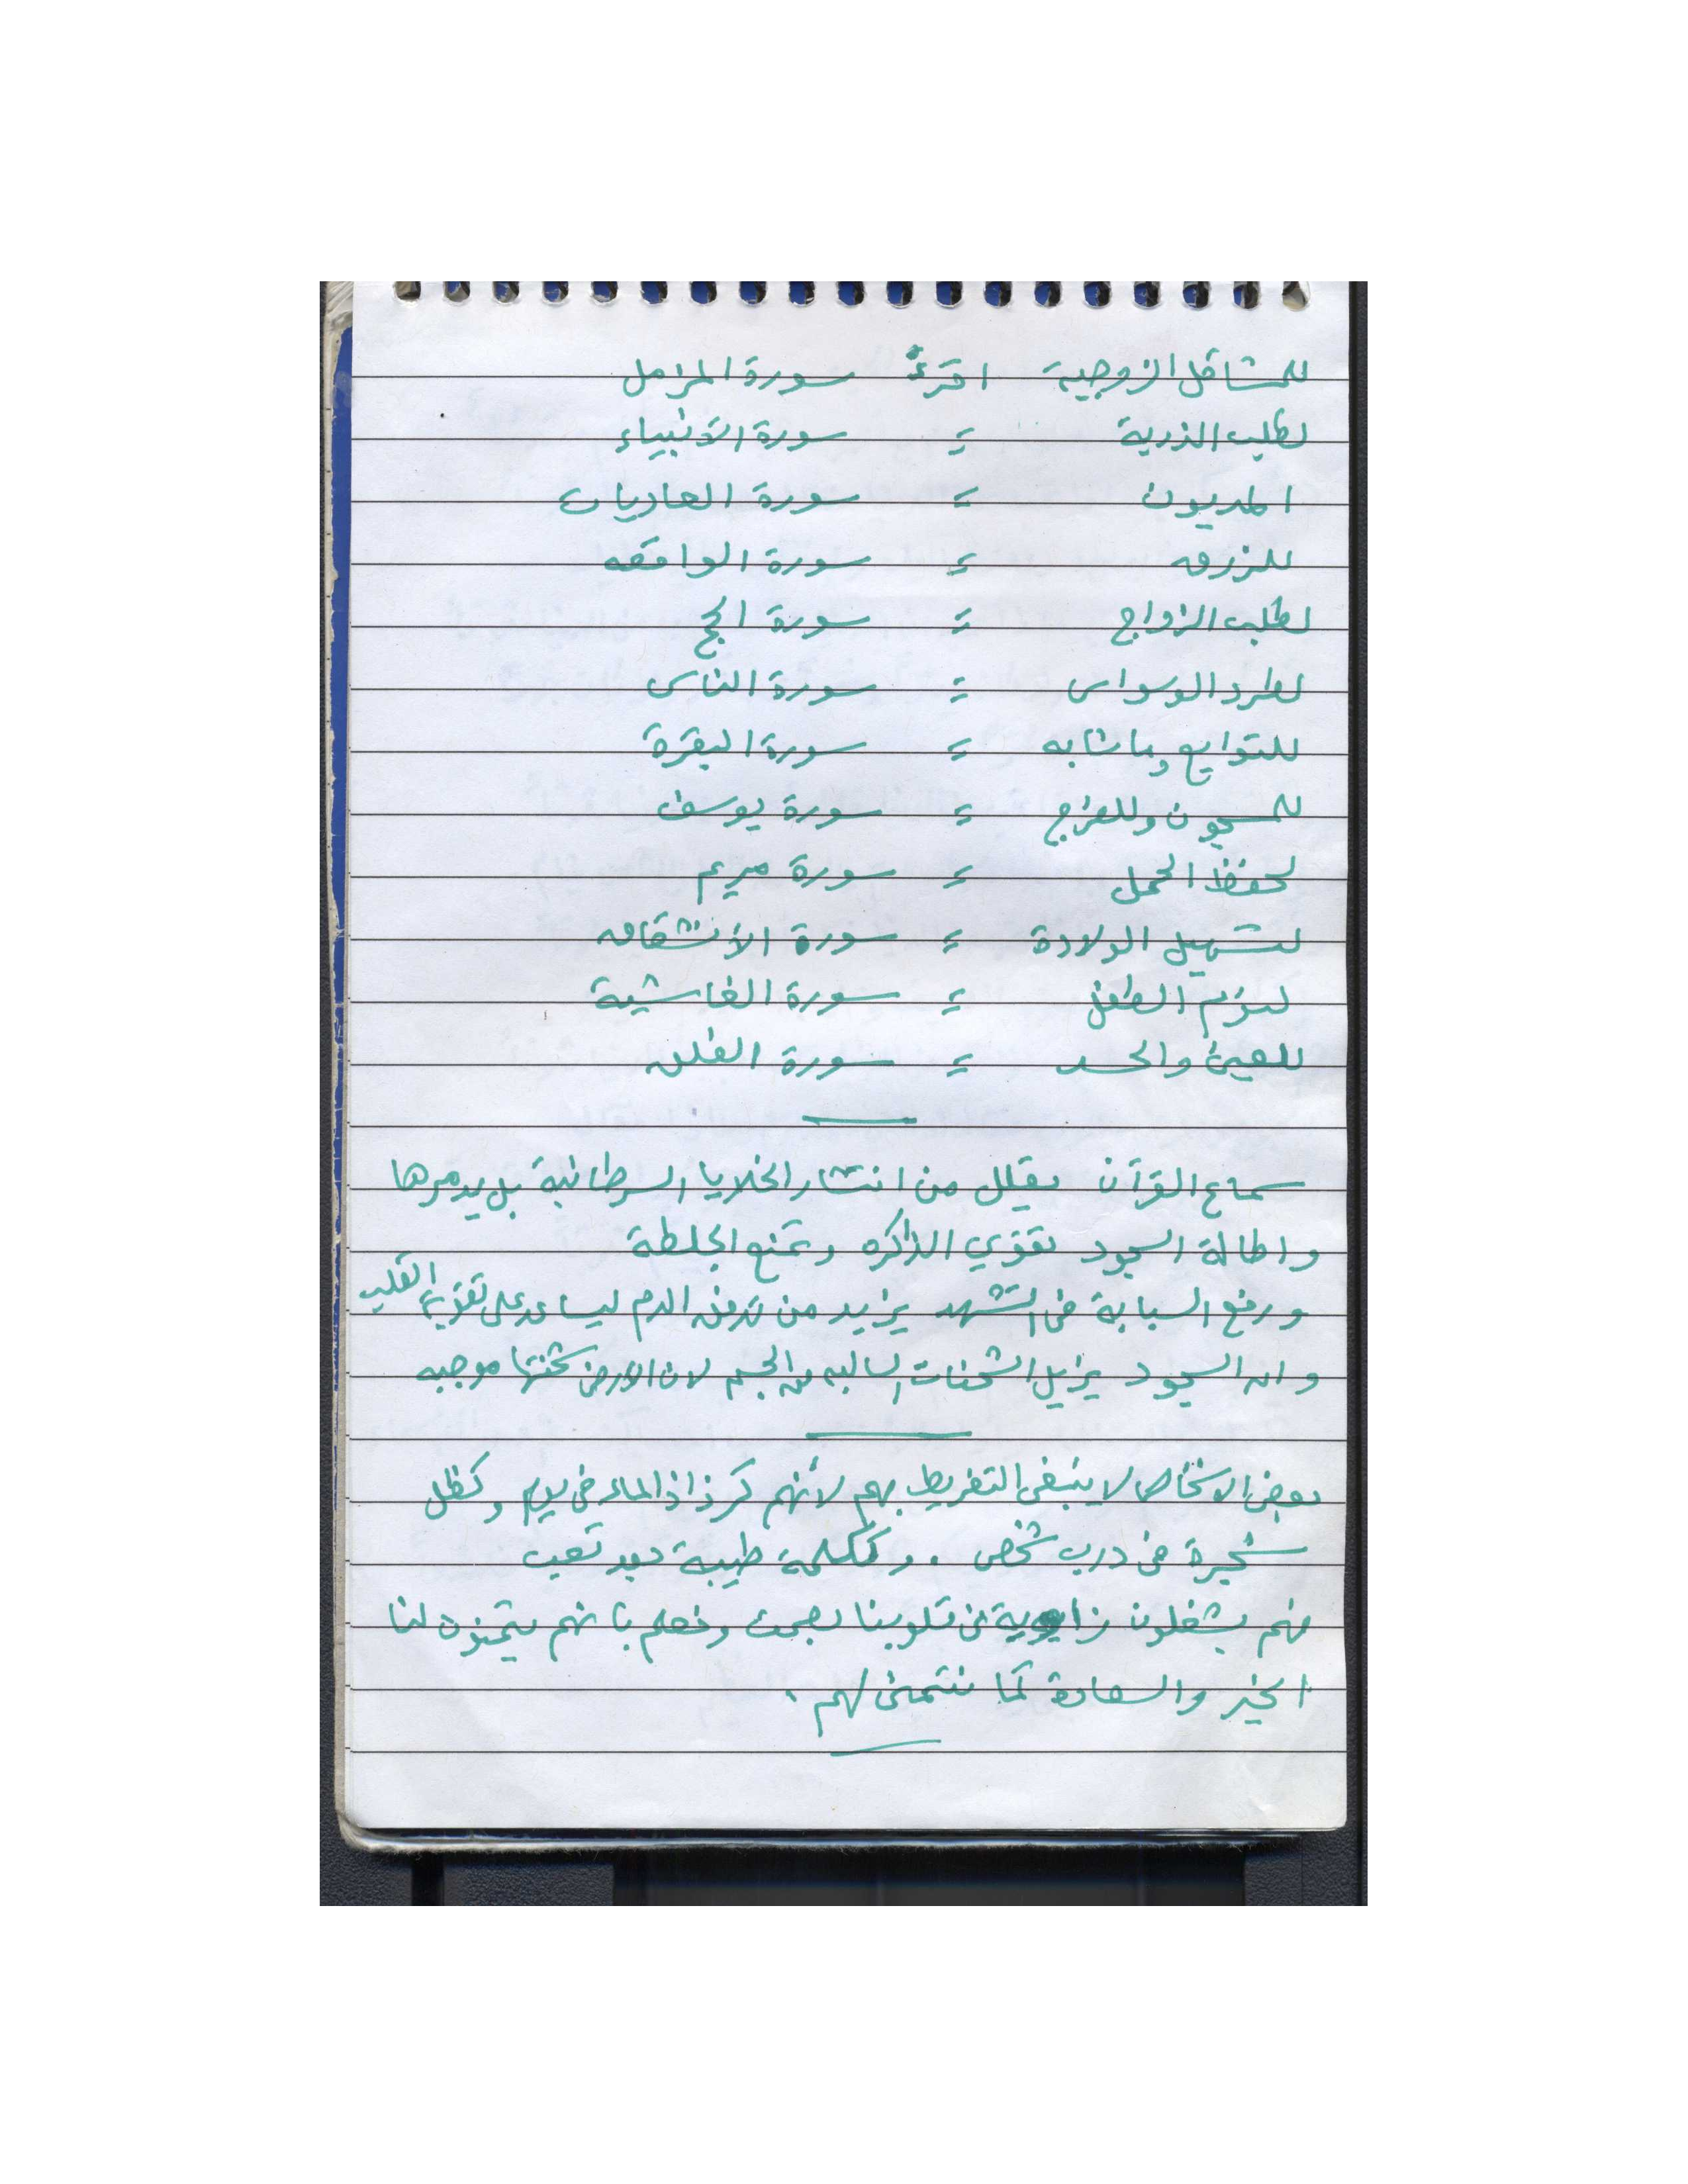 للمشاكل الزوجية اقرأ سورة المزمل
لطلب الذرية = سورة الأنبياء
المديون = سورة العاديات
للرزق = سورة الواقعه
لطلب الزواج = سورة الحج
لطرد الوسواس = سورة الناس
للتوابع وما شابه = سورة البقرة
للمسجون وللفرج = سورة يوسف
لحفظ الحمل = سورة مريم
لتسهيل الولادة = سورة الأنشقاق
لنوم الطفل = سورة الغاشية
للعين والحسد = سورة الفلق
سماع القرآن يقلل من انتشار الخلايا السرطانية بل يدمرها
واطالة السجود تقوي الذاكره وتمنع الجلطة
ورفع السبابة في التشهد يزيد من تدفق الدم ليساعد على تقوية القلب
وان السجود يزيل الشحنات السالبه من الجسم لان الارض شحنتها موجبه
بعض الاشخاص لا ينبغي التفريط بهم لأنهم كرذاذ الماء في يوم وكظل
شجيرة في درب شخص . وككلمة طيبة بعد تعب
فهم يشغلون زاوية في قلوبنا بصمت ونعلم بانهم يتمنون لنا
الخير والسعادة كما نتمنى لهم .